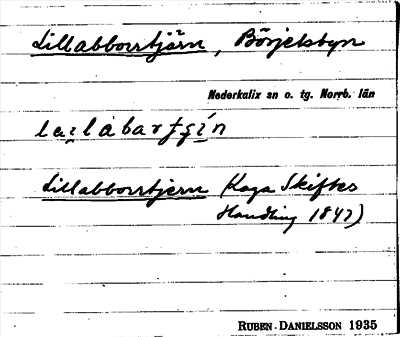 Lillabborrtjärn, Börjelsbyn
Nederkalix sn o. tg. Norrb. län
Lillabborrtjern (Laga Skiftes
Handling 1847)
RUBEN DANIELSSON 1935